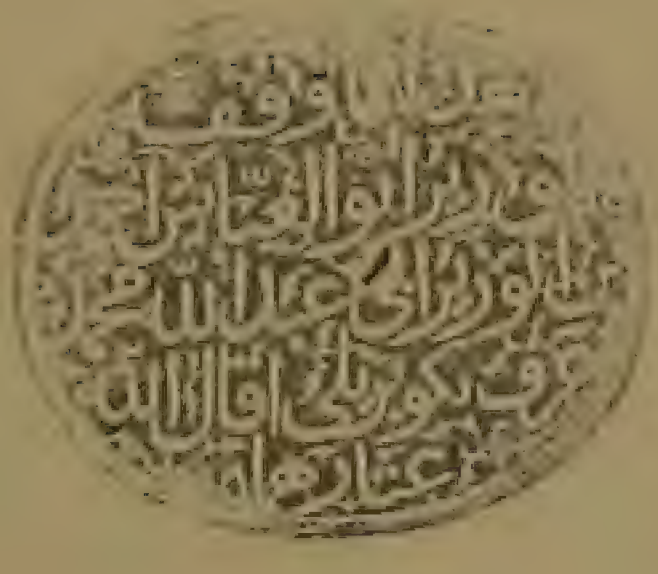 وقف
الوزير ابو العباس ا
بن الوزير ابى عبد الله محمد
عرف بكوبريلى اقال الله
عثارهما